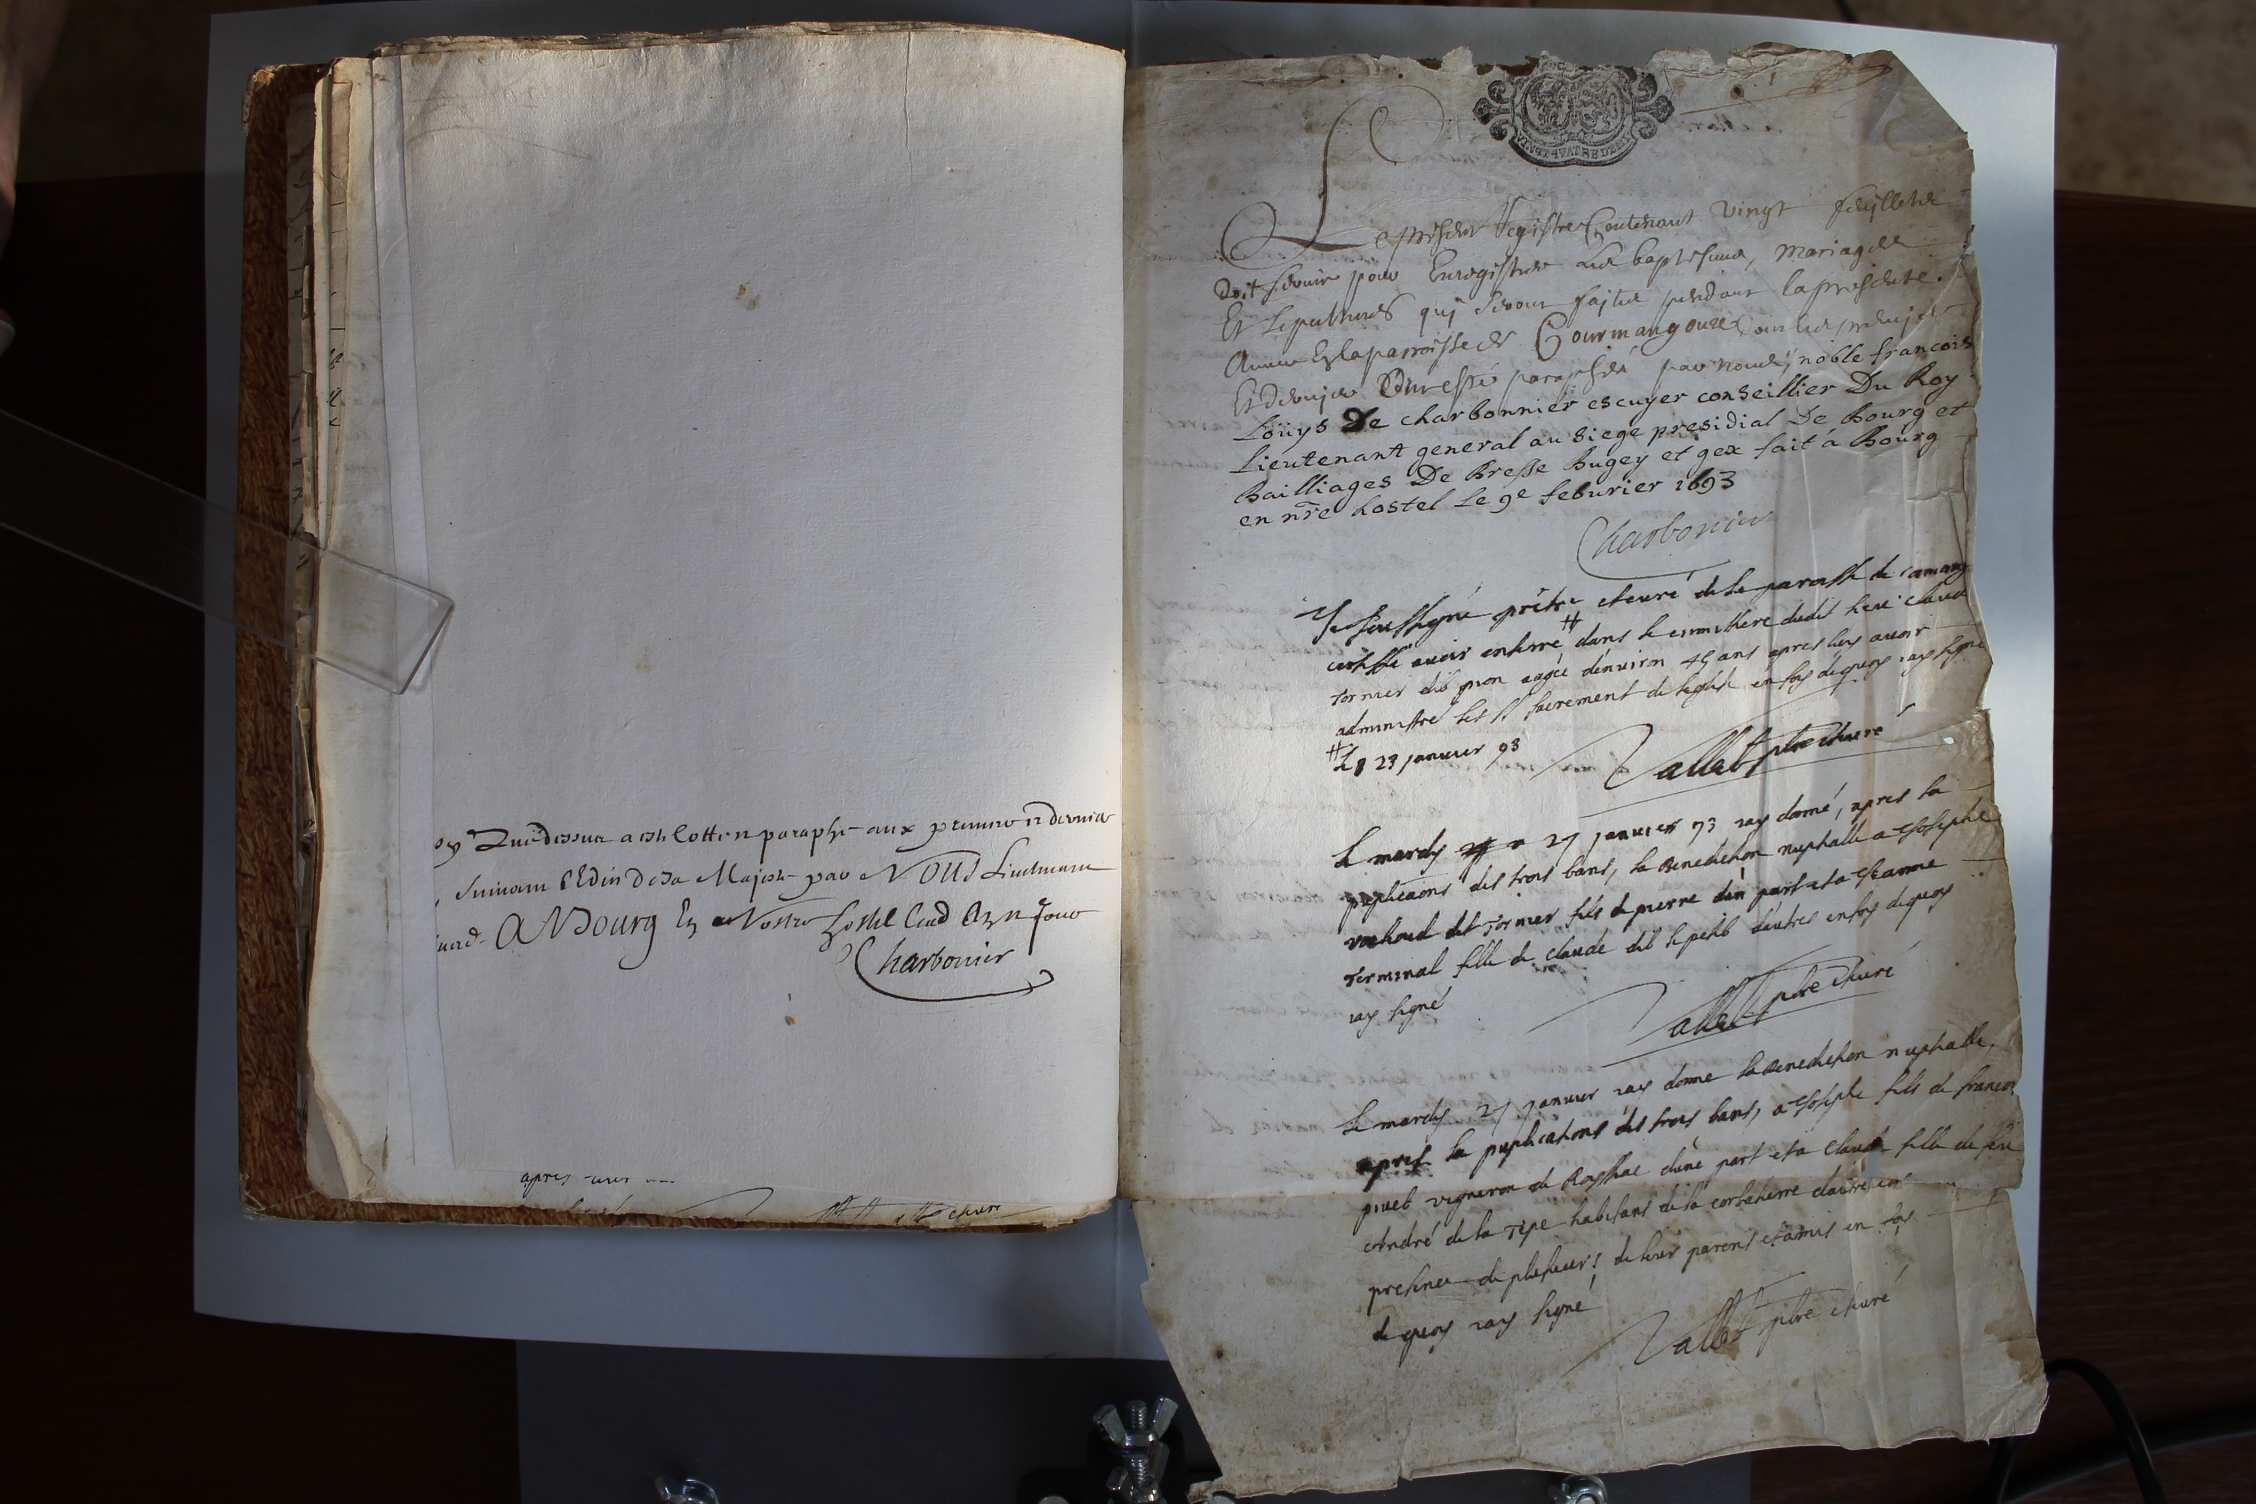 Qui dessus a esté Cotté et paraphé aux premier et dernier
suivant l'Edit de sa Majesté par Nous Lieutenant
A Bourg En Nostre hostel Lesd An et Jour
Charbonier
apres
VINGT QVATRE DEN
Le present Registre Contenant vingt feuillets
doit servir pour Enregistrer les baptesmes, mariages
Et sepultures qui seront faites pendant la presente
Annee En la parroisse de Courmangoux
Et dernier paraphés par nous, noble francois
Loüys De charbonnier escuyer conseillier Du Roy
Lieutenant general au siege presidial De Bourg et
Bailliages De Bresse Bugey et gex fait á Bourg
en nre hostel Le 9e feburier 1693
Charbonier
Je soussigné prêtre et curé de la paroisse de
certifie avoir enterré # dans le cimithere dudit lieu claud
tornier agée d'environ 45 ans apres luy avoir
administré les Sts sacrement de l'eglise en foy dequoy iay signé
# le 23 janvier 93
Vallet ptre et curé
le mardy 27 janvier 93 iay donné, apres la
puplications des trois bans, la benediction nuptialle a Joseph
dit tornier fils de pierre d'un part et a Jeanne
terminal fille de claude dit le petit d'autres en foy dequoy
iay signé
Vallet ptre et curé
le mardy 27 janvier iay donné la benediction nuptialle,
apres la puplications des trois bans, a Joseph fils de francois
vigneron de d'une part et a claud fille de feu
André de la habitans de la d'autre, en
presence de plusieurs de leur parens et amis en foy
de quoy iay signé
Vallet ptre et curé